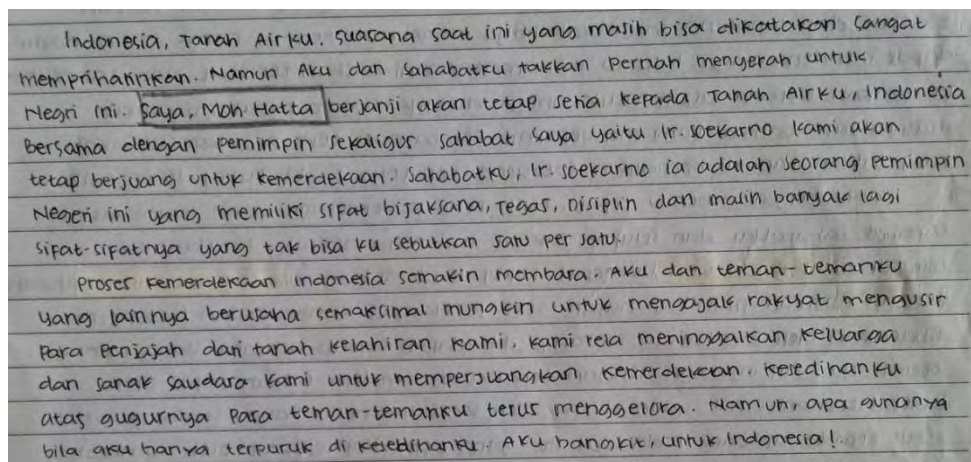 Indonesia, Tanah Airku. Suasana saat ini yang masih bisa dikatakan sangat
memprihatinkan. Namun Aku dan sahabatku takkan pernah menyerah untuk
Negri ini. Saya, Moh Hatta berjanji akan tetap setia kepada Tanah Airku, Indonesia
Bersama dengan pemimpin sekaligus sahabat saya yaitu Ir. Soekarno kami akan
tetap berjuang untuk kemerdekaan. Sahabatku, Ir. Soekarno ia adalah seorang pemimpin
Negeri ini yang memiliki sifat bijaksana, Tegas, Disiplin dan masih banyak lagi
sifat-sifatnya yang tak bisa ku sebutkan satu per satu.
Proses Kemerdekaan Indonesia semakin membara. Aku dan teman-temanku
yang lainnya berusaha semaksimal mungkin untuk mengajak rakyat mengusir
para penjajah dari tanah kelahiran kami. Kami rela meninggalkan keluarga
dan sanak saudara kami untuk memperjuangkan kemerdekaan. Kesedihanku
atas gugurnya para teman-temanku terus menggelora. Namun, apa gunanya
bila aku hanya terpuruk di kesedihanku. Aku bangkit, untuk Indonesia!